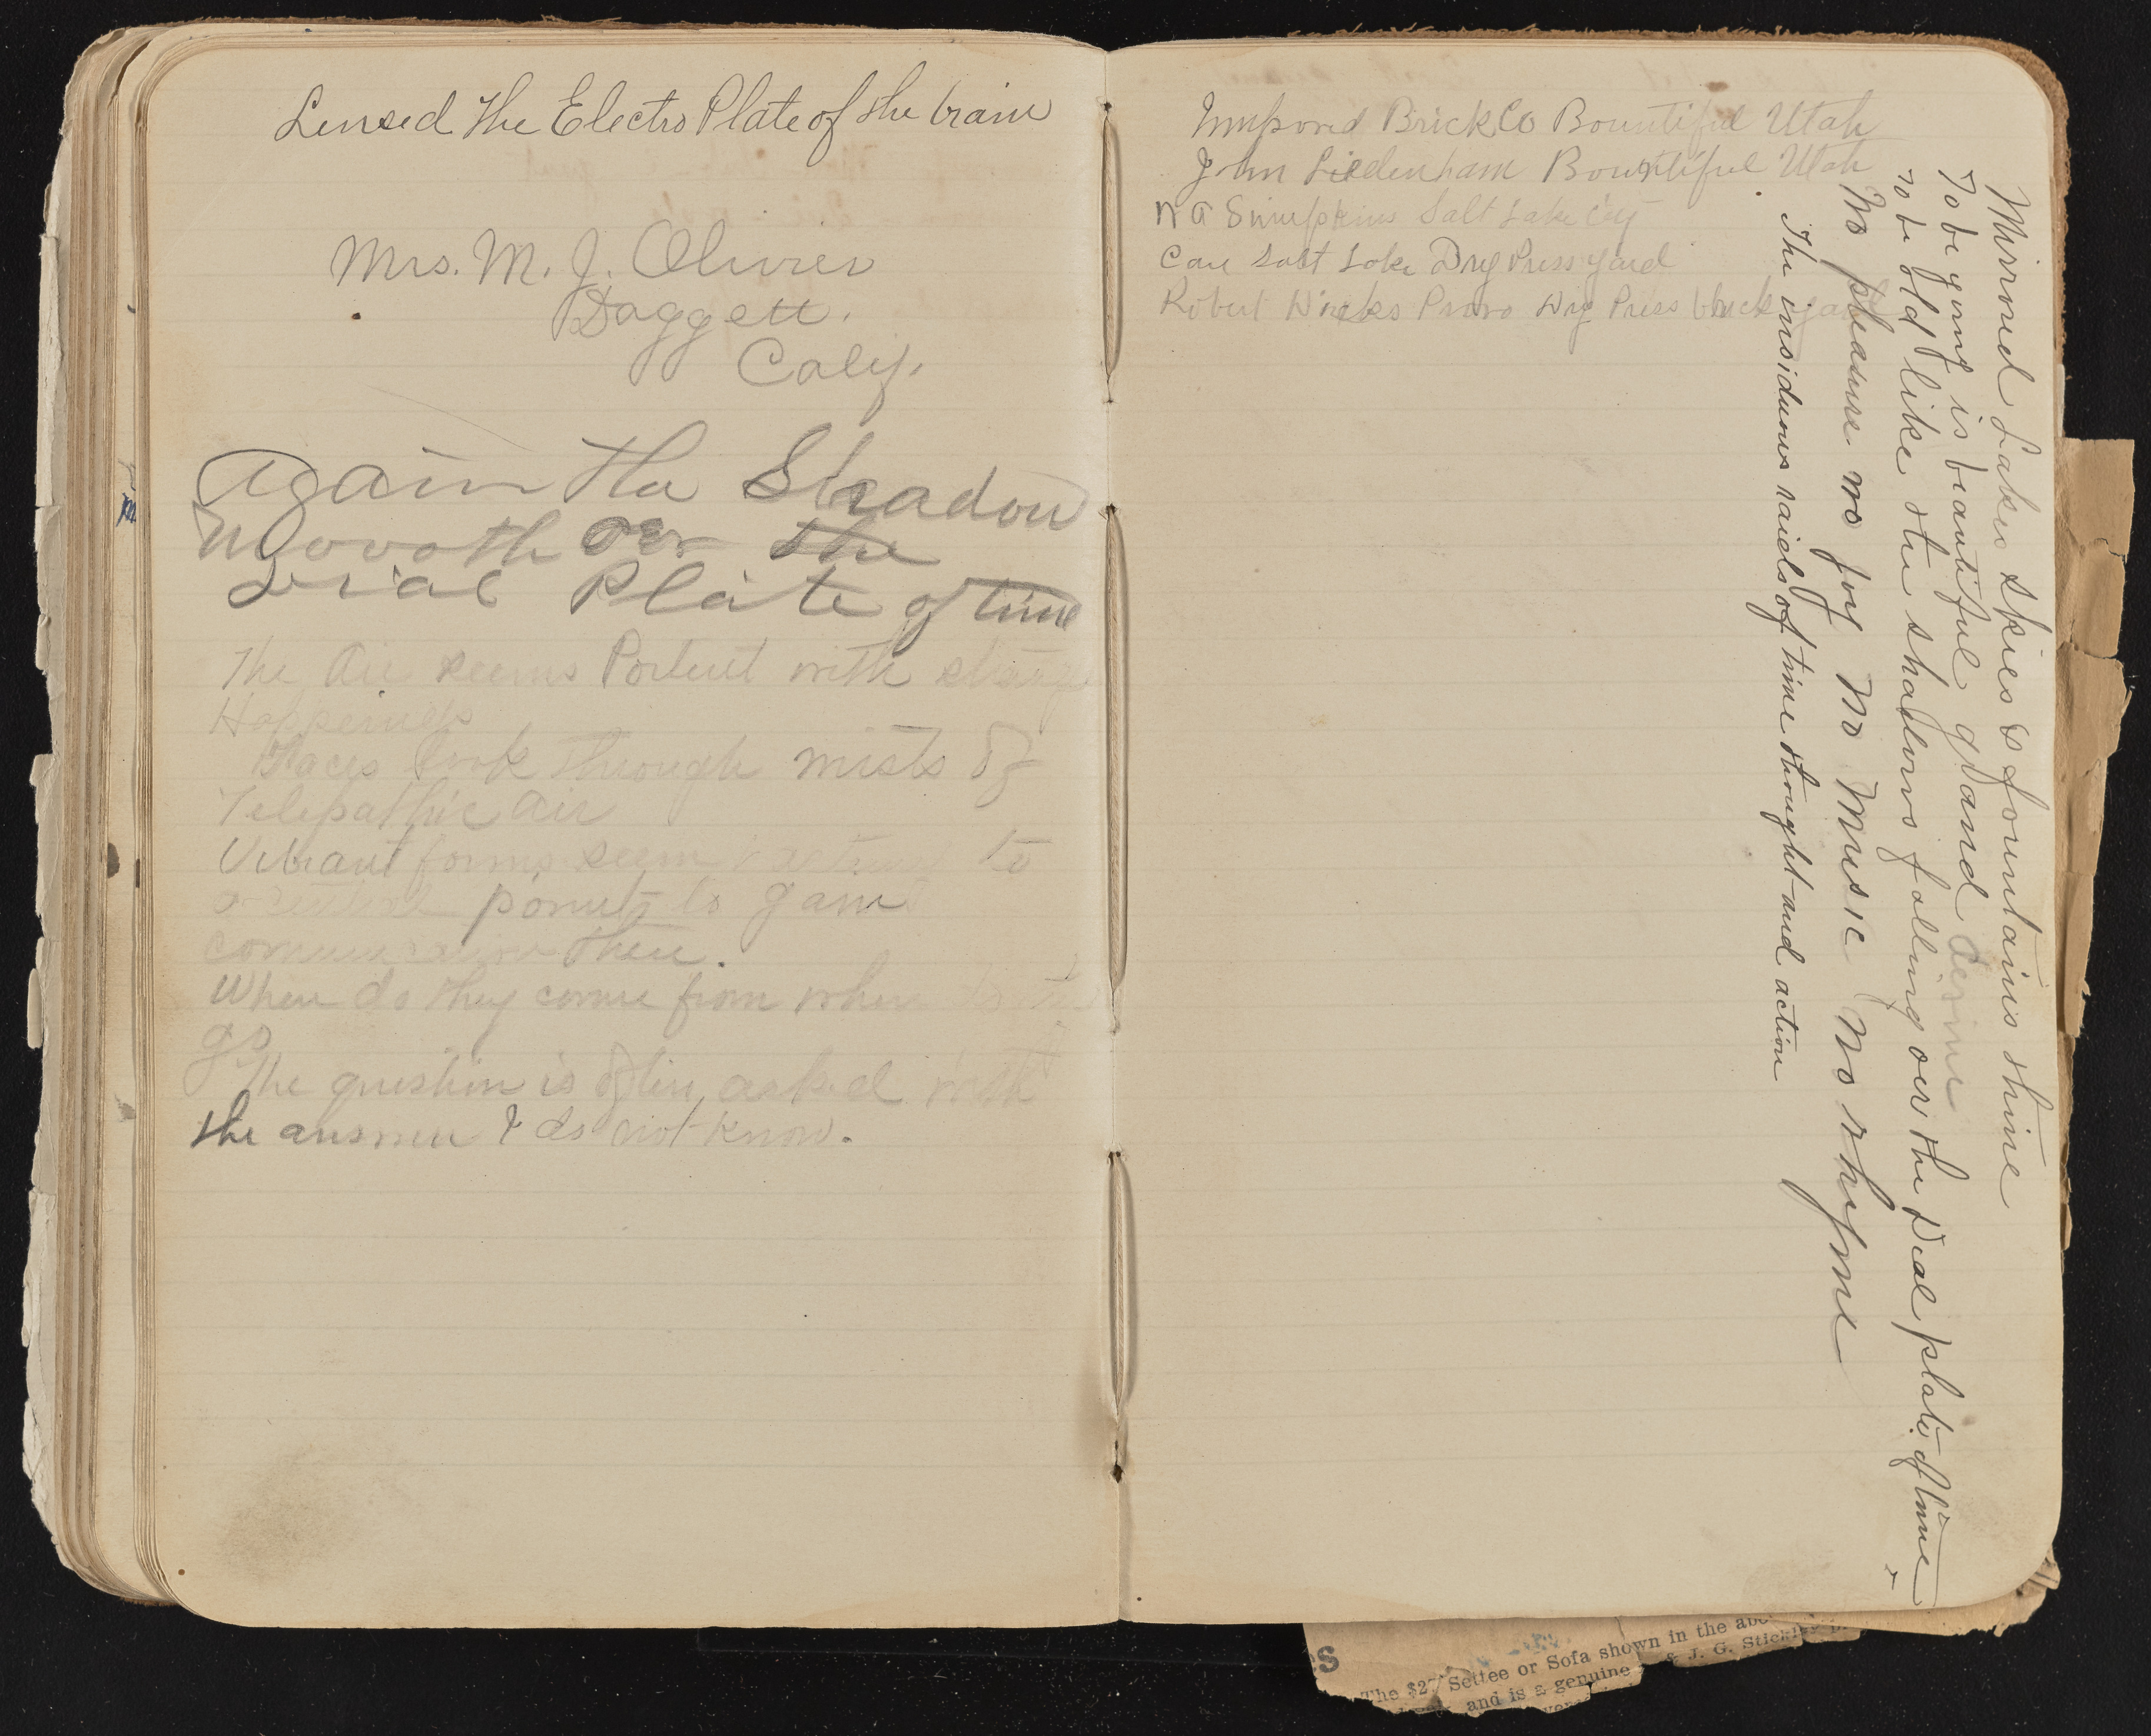 Lensed The Electro Plate of the brain
Mrs. M. J. Olivier
Daggett.
Calif.
Again the Shadow
Moovoth over the
Dial Plate of time
The Air seems Portent with strange
Happenings
Faces look through mists of
Telepathic air
Vibrant forms seem to
points to gain
there.
When do they come from when
go
The question is often asked with
the answer I do not know.
Improved Brick Co Bountiful Utah
John Bountiful Utah
N G Simpkins Salt Lake City
Care Salt Lake Dry Press yard
Robert Provo Dry Press brick yard
Mirrored Lakes skies & fountains shine
To be young is beautiful grand devine
To be old like the shadows falling over the Dial plate of time
No pleasure no joy No Music No rhyme
The insidious raids of time thought and action
s
The $27 Settee or Sofa shown in the abo
& J. G. Stickley
and is a genuine